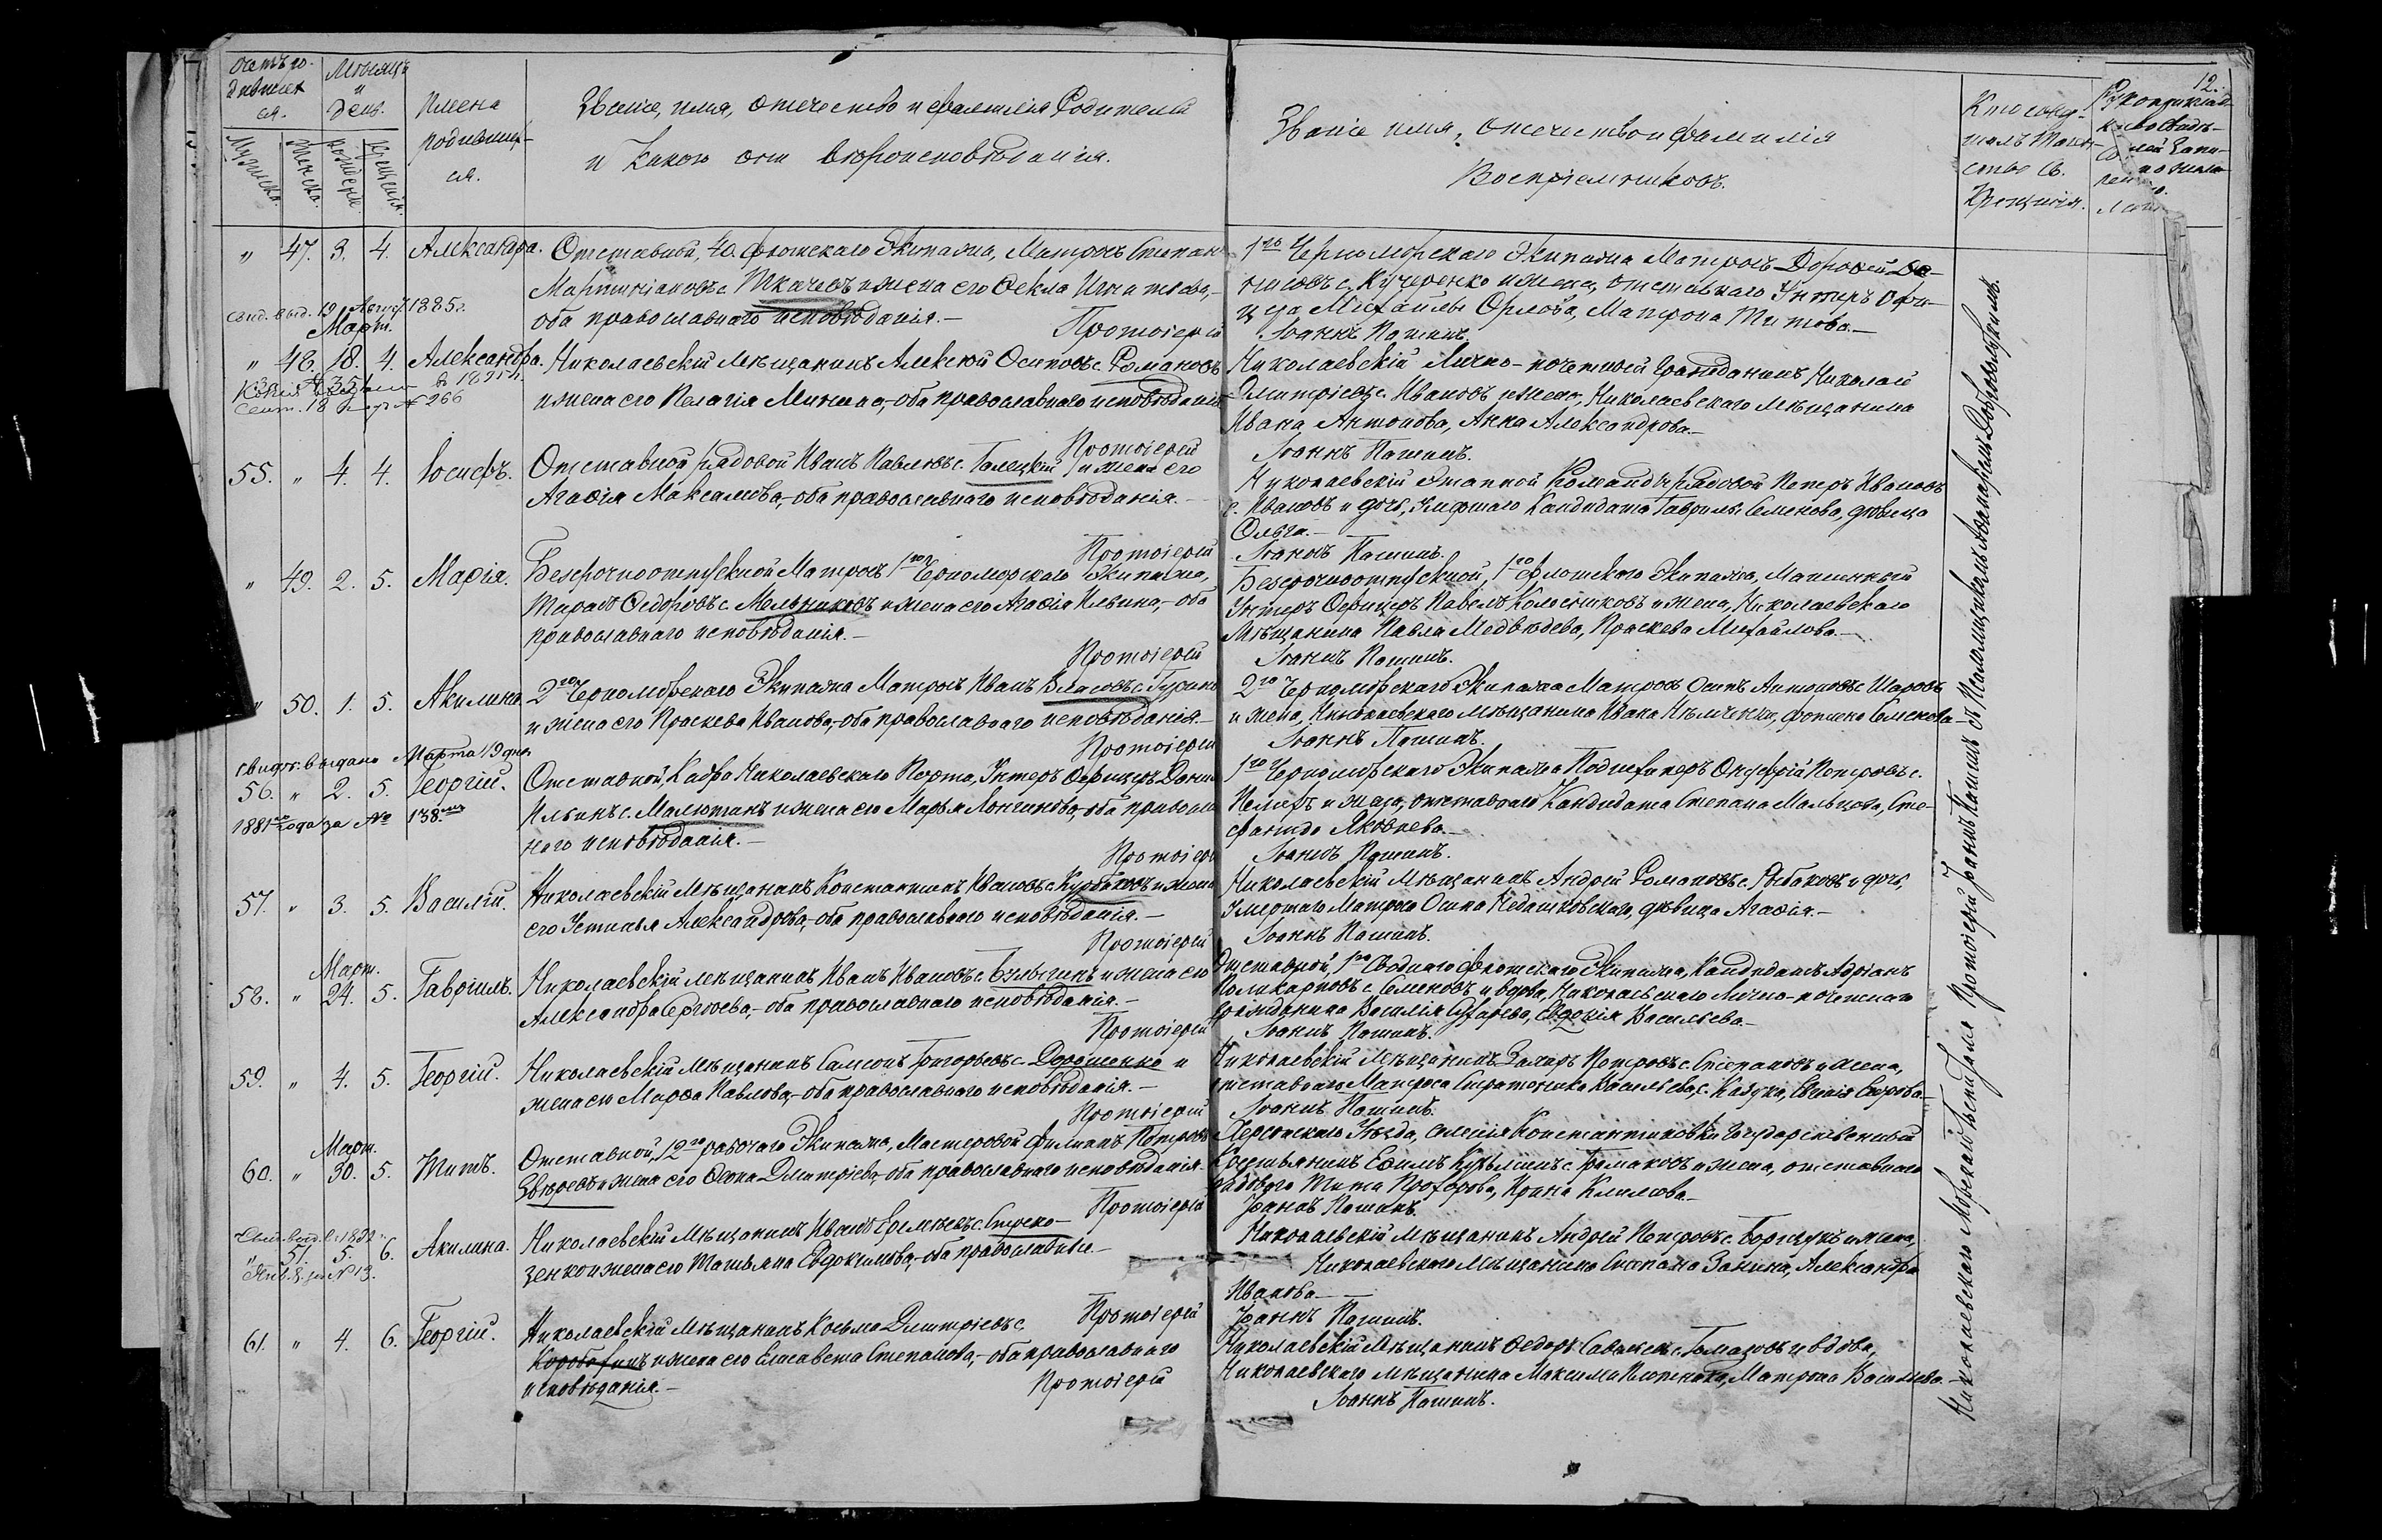 Счетъ родившихся.
Мѣсяцъ и день.
Имена родившихся.
Званіе, имя, отчество и фамилія Родителей
и какого они вѣроисповѣданія.
Званіе имя, отчество и фамилія
Воспріемниковъ.
Кто совершалъ таинство Св. Крещенія.
12.
Мужеска. Женска. рожденія. Крещенія.
" 47. 3. 4. Александра. Отставной, 40. флотскаго Экипажа, Матросъ Степанъ
Мартиніановъ с. Ткачевъ и жена его Ѳекла Игнатова,-
оба православнаго исповѣданія.-
Протоіерей
1го Черноморскаго Экипажа Матросъ Дороѳей
с. Кучеренко и жена, отставнаго Унтеръ Офи-
цера Михайлы Орлова, Матрона Титова.-
Іоаннъ Пашинъ.
Свид. выд. 19 Август. 1885г.
Март.
" 48. 18. 4. Александра. Николаевскій мѣщанинъ Алексѣй Осиповъ с. Романовъ
и жена его Пелагія Минина,-оба православнаго исповѣданія.
Протоіерей
Николаевскій Лично-почетной Гражданинъ Николай
Дмитріевъ с. Ивановъ и жена, Николаевскаго мѣщанина
Ивана Антонова, Анна Александрова.-
Іоаннъ Пашинъ.
55. " 4. 4. Іосифъ. Отставной рядовой Иванъ Павловъ с. Галецкій и жена его
Агаѳія Максимова,-оба православнаго исповѣданія.-
Протоіерей
Николаевскій Этапной Команды рядовой Петръ Ивановъ
с. Ивановъ и дочь, умершаго Кандидата Гаврилы Семенова, дѣвица
Ольга.-
Іоаннъ Пашинъ.
" 49. 2. 5. Марія. Безсрочноотпускной Матросъ 1го Черноморскаго Экипажа,
Тарасъ Ѳедоровъ с. Мельниковъ и жена его Агаѳія Ильина,-оба
православнаго исповѣданія.-
Протоіерей
Безсрочноотпускной, 1го флотскаго Экипажа, Машинный
Унтеръ Офицеръ Павелъ Колесниковъ и жена, Николаевскаго
Мѣщанина Павла Медвѣдева, Праскева Михайлова.-
Іоаннъ Пашинъ.
" 50. 1. 5. Акилина. 2го Черноморскаго Экипажа Матросъ Иванъ Власовъ с.
и жена его Праскева Иванова,-оба православнаго исповѣданія.-
Протоіерей
2го Черноморскаго Экипажа Матросъ Осипъ Антоновъ с. Шаровъ
и жена, Николаевскаго мѣщанина Ивана Семенова
Іоаннъ Пашинъ.
Свидѣт. выдано Марта 19 дня
56. " 2. 5. Георгій. Отставной, Кадра Николаевскаго Порта, Унтеръ Офицеръ
Ильинъ с. Малютинъ и жена его Марѳа Лонгинова,-оба православ-
наго исповѣданія.-
Протоіерей
1881го года за № 138мъ
1го Черноморскаго Экипажа Подшкиперъ Онуфрій Петровъ с.
и жена, отставнаго Кандидата Степана Мальцова, Сте-
фанида Яковлева.-
Іоаннъ Пашинъ.
57. " 3. 5. Василій. Николаевскій Мѣщанинъ Константинъ Ивановъ с. Курбаковъ и жена
его Устинья Александрова,-оба православнаго исповѣданія.-
Протоіерей
Николаевскій Мѣщанинъ Андрей Романовъ с. Рыбаковъ и дочь,
умершаго Матроса Осипа Недашковскаго, дѣвица Агаѳія.-
Іоаннъ Пашинъ.
Март.
58. " 24. 5. Гавріилъ. Николаевскій мѣщанинъ Иванъ Ивановъ с. и жена его
Александра Сергѣева,-оба православнаго исповѣданія.-
Протоіерей
Отставной, 1го Своднаго флотскаго Экипажа, Кандидатъ Адріанъ
Поликарповъ с. Семеновъ и вдова, Николаевскаго Лично-почетнаго
Гражданина Василія Сухарева, Евдокія Васильева.-
Іоаннъ Пашинъ.
59. " 4. 5. Георгій. Николаевскій Мѣщанинъ Самсонъ Григорьевъ с. Дорошенко и
жена его Марѳа Павлова,-оба православнаго исповѣданія.-
Протоіерей
Николаевскій Мѣщанинъ Захаръ Петровъ с. Степановъ и жена,
отставнаго Матроса Стратоника Васильева, с. Кадука,
Іоаннъ Пашинъ.
Март.
60. " 30. 5. Титъ. Отставной, 12го рабочаго Экипажа, Мастеровой Филипъ Петровъ
Звѣревъ и жена его Дмитріева,-оба православнаго исповѣданія.
Протоіерей
Херсонскаго Уѣзда, селенія Константиновки Государственный
Крестьянинъ Ефимъ с. и жена, отставнаго
рядоваго Тита Прохорова, Ирина Климова.-
Іоаннъ Пашинъ.
Свид. выд. 1889
" 51. 5. 6. Акилина. Николаевскій Мѣщанинъ Иванъ Еремѣевъ с.
зенко и жена его Татьяна Евдокимова,-оба православные.-
№ 13.
Протоіерей
Николаевскій Мѣщанинъ Андрей Петровъ с. и жена,
Николаевскаго Мѣщанина Степана Занина, Александра
Иванова.-
Іоаннъ Пашинъ.
61. " 4. 6. Георгій. Николаевскій Мѣщанинъ Косьма Дмитріевъ с.
и жена его Елисавета Степанова,-оба православнаго
исповѣданія.-
Протоіерей
Николаевскій Мѣщанинъ Ѳедоръ с. и вдова,
Николаевскаго мѣщанина Максима Матрона
Іоаннъ Пашинъ.
Николаевскаго Морскаго Протоіерей Іоаннъ Пашинъ съ Псаломщикомъ